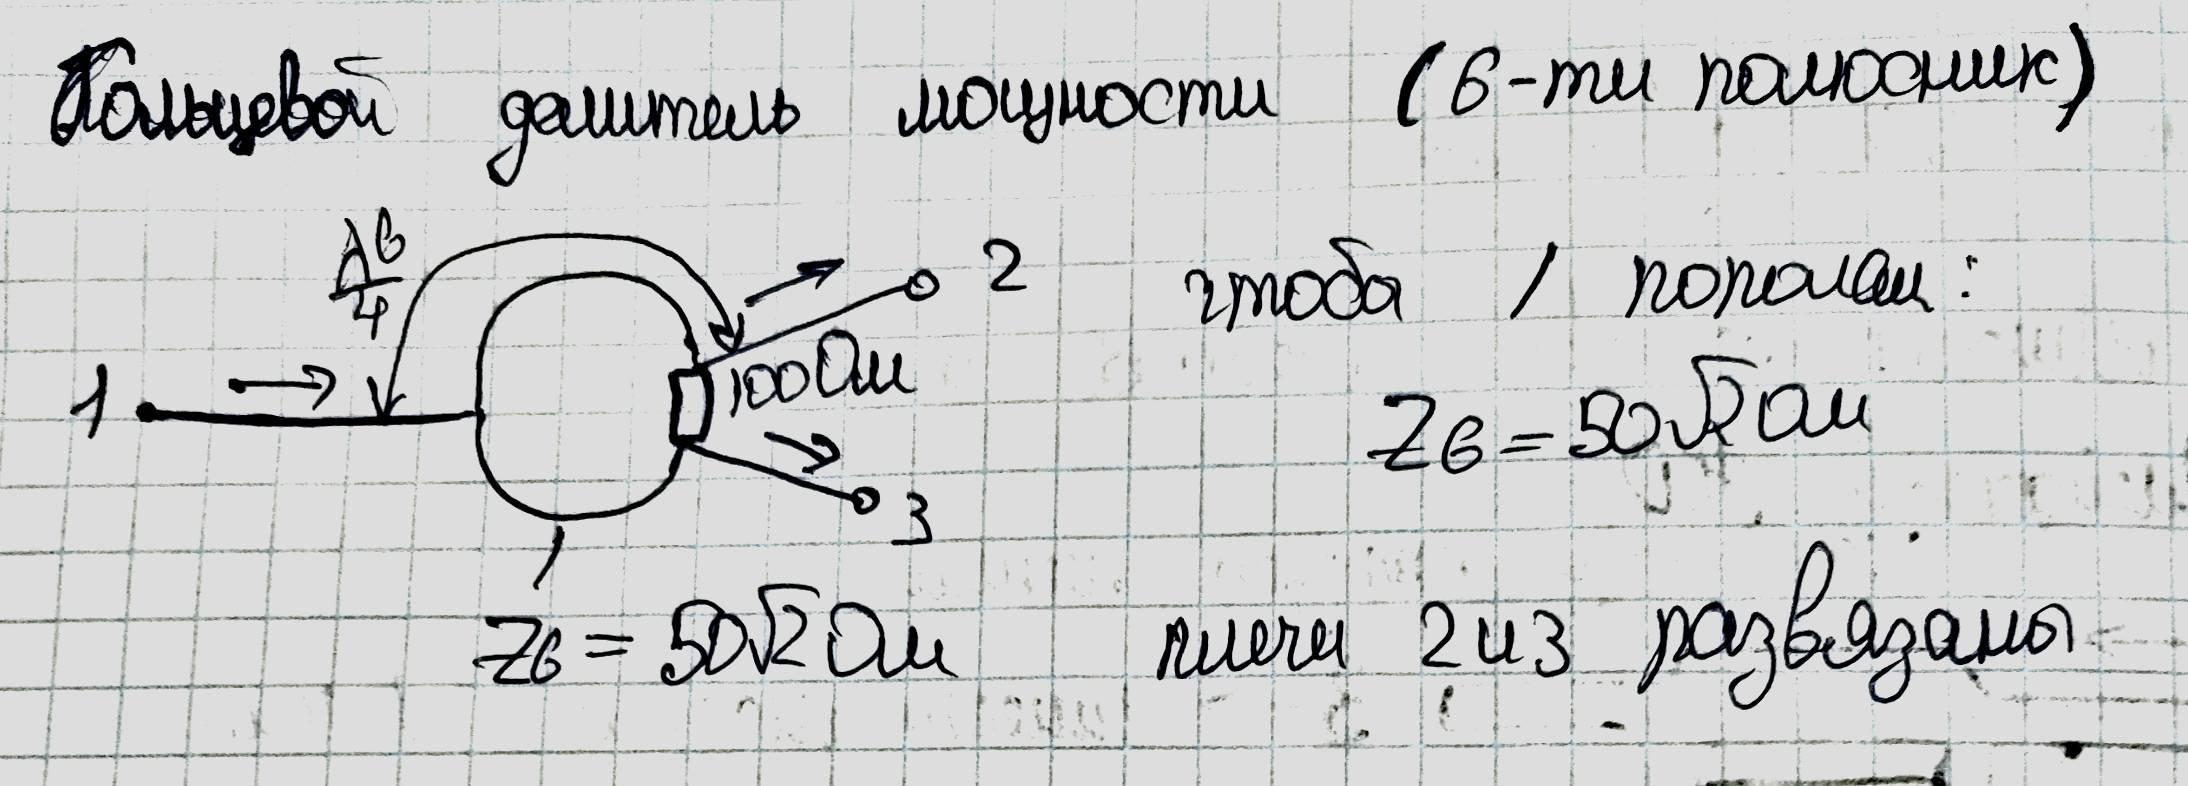 Кольцевой делитель мощности (6-ти полюсник)
λв/4
1
2
100 Ом
3
Zв = 50√2 Ом
чтобы / пополам:
Zв = 50√2 Ом
плечи 2 и 3 развязаны